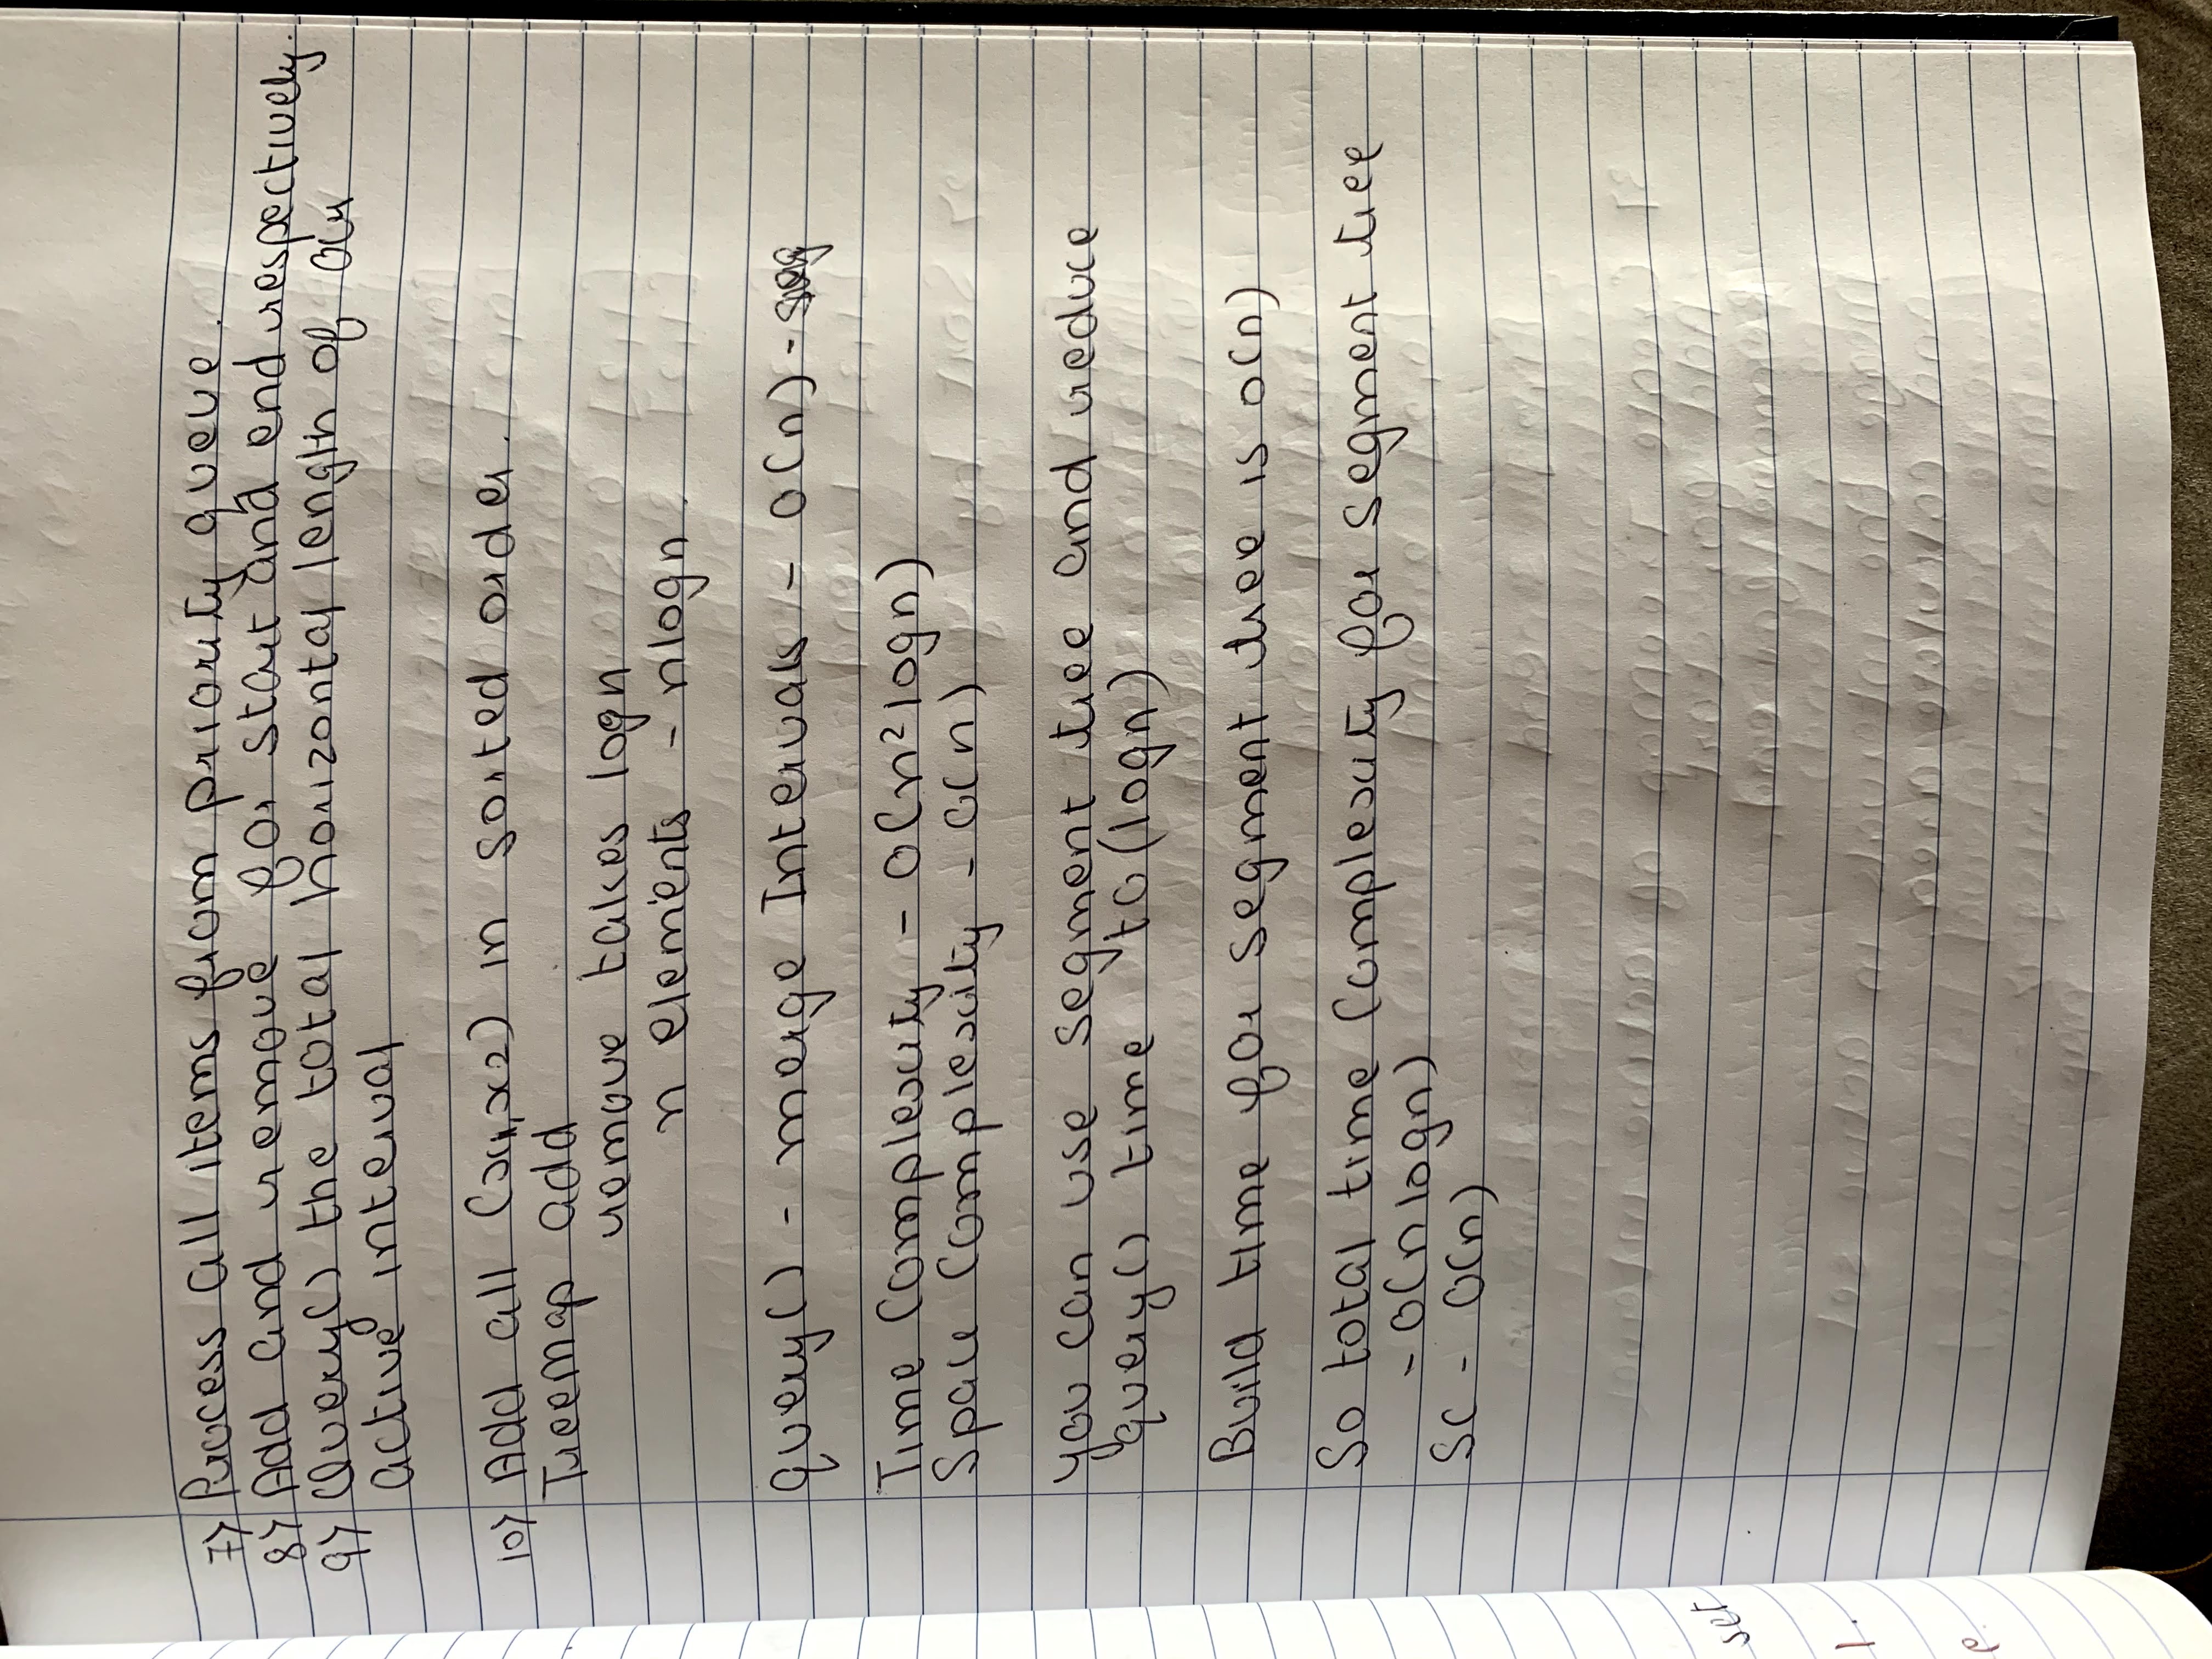 7) Process all items from priority queue.
8) Add and remove for start and end respectively.
9) Query() the total horizontal length of all
active interval
10) Add all (x1,x2) in sorted order.
TreeMap add
remove takes logn
n elements - nlogn.
query() - merge Intervals - O(n) -
Time Complexity - O(n²logn)
Space Complexity - O(n)
you can use segment tree and reduce
query() time to (logn)
Build time for segment tree is O(n)
So total time complexity for segment tree
- O(nlogn)
SC - O(n)
set
1.